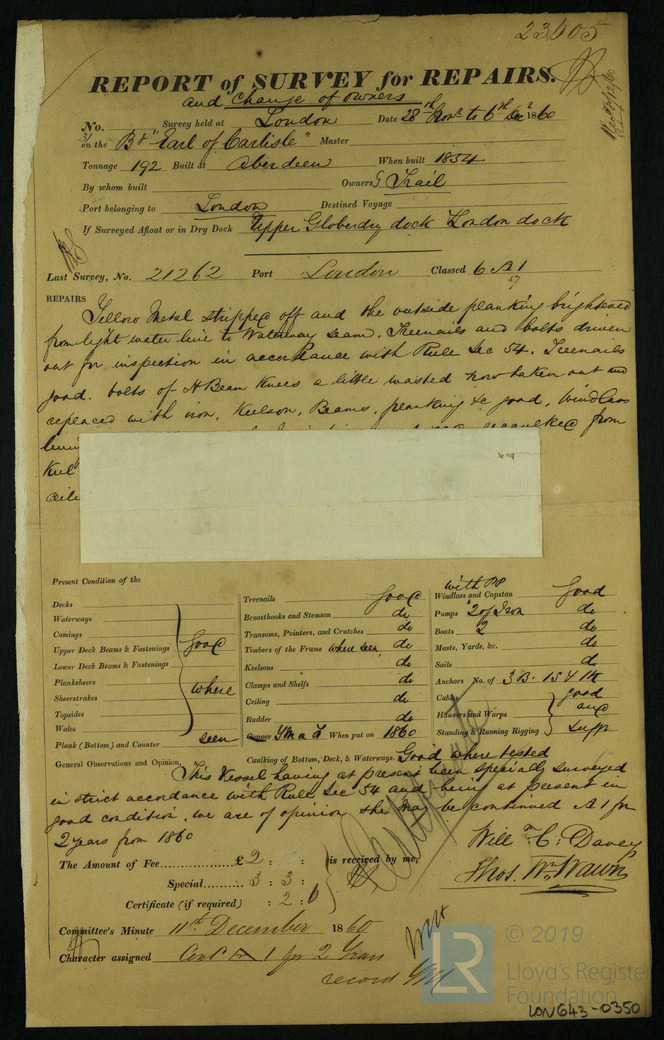 23605
REPORT of SURVEY for REPAIRS.
and change of owners
No. Survey held at London Date 28th Novr to 6th Decr 1860
on the Bk "Earl of Carlisle" Master
Tonnage 192 Built at Aberdeen When built 1854
By whom built Owners G Trail
Port belonging to London Destined Voyage
If Surveyed Afloat or in Dry Dock Upper dock London dock
Last Survey, No. 21262 Port London Classed 6 A1
57
REPAIRS Yellow Metal stripped off and the outside planking brightened
from light water line to Waterway seam. Treenails and bolts driven
out for inspection in accordance with Rule Sec 54. Treenails
good. bolts of H Beam Knees a little wasted now taken out and
replaced with iron. Keelson, Beams, planking &c good. Windlass
caulked from
Present Condition of the
Decks
Waterways
Comings
Upper Deck Beams & Fastenings good
Lower Deck Beams & Fastenings
Planksheers where
Sheerstrakes
Topsides
Wales
Plank (Bottom) and Counter seen
Treenails good
Breasthooks and Stemson do
Transoms, Pointers, and Crutches do
Timbers of the Frame where seen do
Keelsons do
Clamps and Shelfs do
Ceiling do
Rudder do
Copper YM & F When put on 1860
Caulking of Bottom, Deck, & Waterways Good where tested
with PP
Windlass and Capstan good
Pumps 2 of Iron do
Boats 2 do
Masts, Yards, &c. do
Sails do
Anchors No. of 3 B. 1 S 4 1K
Cables good
Hawsers and Warps and
Standing & Running Rigging sufft
General Observations and Opinion,
This Vessel having at present been specially surveyed
in strict accordance with Rule Sec 54 and being at present in
good condition, we are of opinion she may be continued A1 for
2 years from 1860
Will m C. Davey
Thos. Wm Wawn
The Amount of Fee £2 : :
Special 3 : 3 :
Certificate (if required) : 2 : 6
is received by me,
Committee's Minute 11th December 1860
Character assigned Cont A 1 for 2 Years
record YM
© 2019
LR
Lloyd's Register
Foundation
LON643-0350